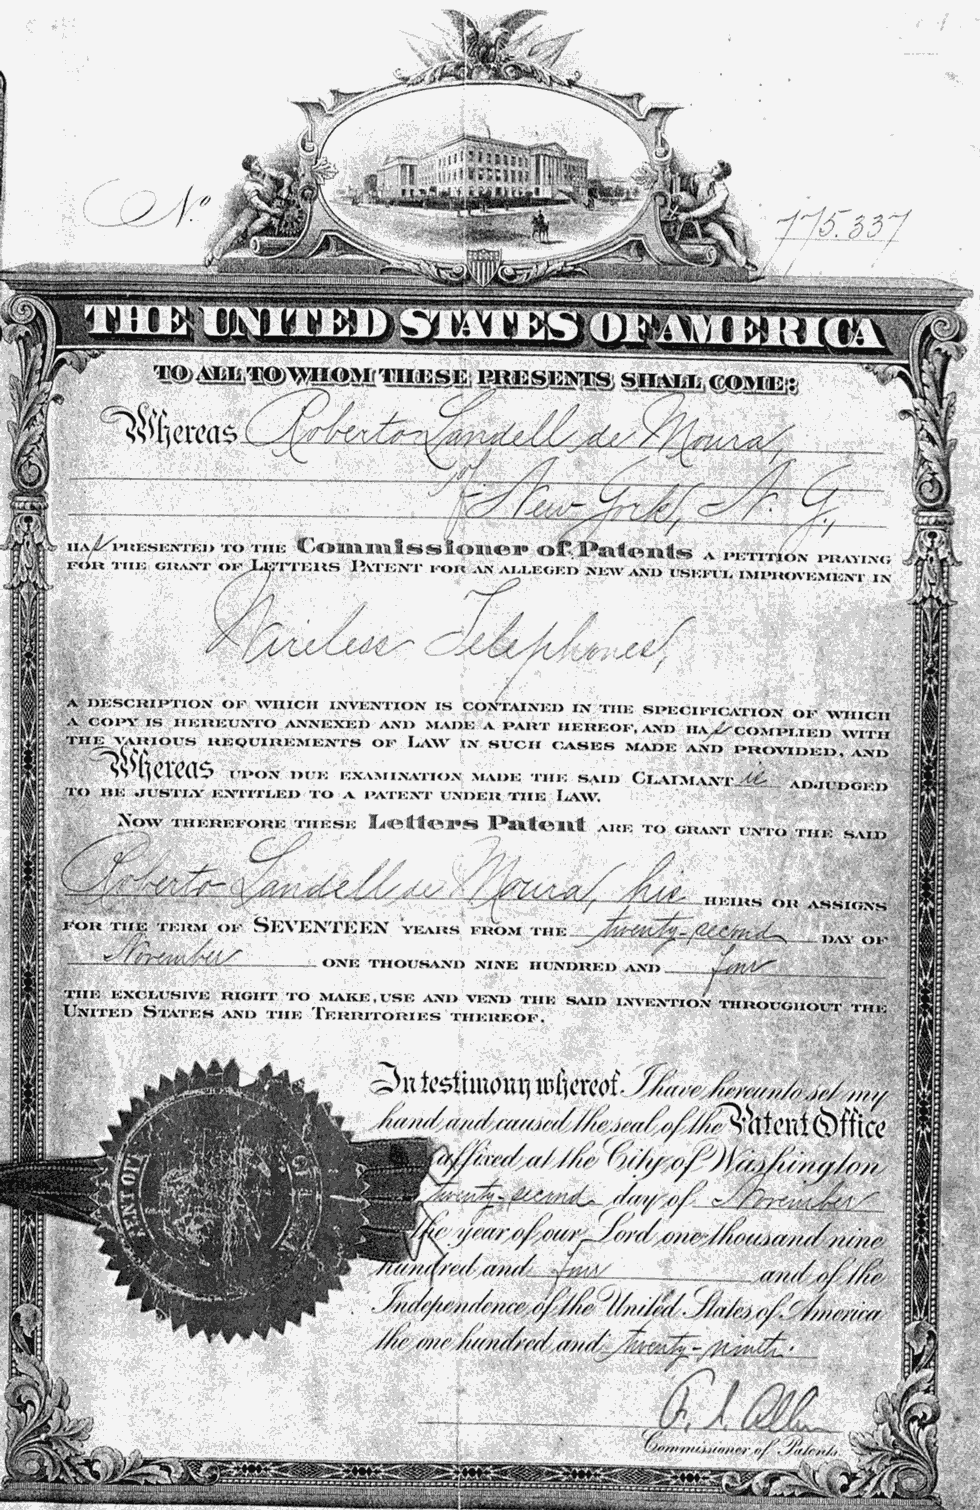 No. 775.337
THE UNITED STATES OF AMERICA
TO ALL TO WHOM THESE PRESENTS SHALL COME:
Whereas Roberto Landell de Moura,
of New York, N. Y.,
HAS PRESENTED TO THE Commissioner of Patents A PETITION PRAYING
FOR THE GRANT OF LETTERS PATENT FOR AN ALLEGED NEW AND USEFUL IMPROVEMENT IN
Wireless Telephones,
A DESCRIPTION OF WHICH INVENTION IS CONTAINED IN THE SPECIFICATION OF WHICH
A COPY IS HEREUNTO ANNEXED AND MADE A PART HEREOF, AND HAS COMPLIED WITH
THE VARIOUS REQUIREMENTS OF LAW IN SUCH CASES MADE AND PROVIDED, AND
Whereas UPON DUE EXAMINATION MADE THE SAID CLAIMANT is ADJUDGED
TO BE JUSTLY ENTITLED TO A PATENT UNDER THE LAW.
NOW THEREFORE THESE Letters Patent ARE TO GRANT UNTO THE SAID
Roberto Landell de Moura, his HEIRS OR ASSIGNS
FOR THE TERM OF SEVENTEEN YEARS FROM THE twenty-second DAY OF
November ONE THOUSAND NINE HUNDRED AND four
THE EXCLUSIVE RIGHT TO MAKE, USE AND VEND THE SAID INVENTION THROUGHOUT THE
UNITED STATES AND THE TERRITORIES THEREOF.
In testimony whereof. I have hereunto set my
hand and caused the seal of the Patent Office
affixed at the City of Washington
twenty-second day of November
the year of our Lord one thousand nine
hundred and four and of the
Independence of the United States of America
the one hundred and twenty-ninth.
F. I. Allen
Commissioner of Patents.